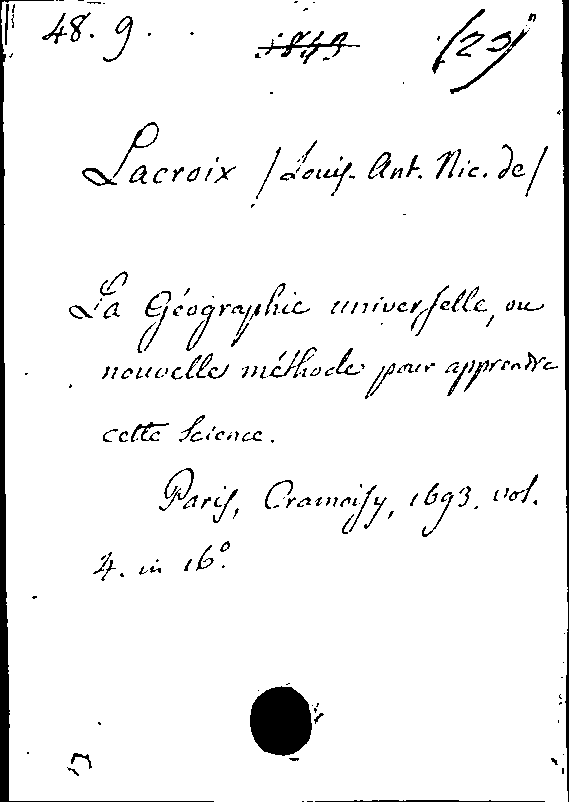 48. 9. 1843 (23)
Lacroix /Louis-Ant. Nic. de/
La Géographie universelle, ou
nouvelle méthode pour apprendre
cette Science.
Paris, Cramoisy, 1693. vol.
4. in 16°.